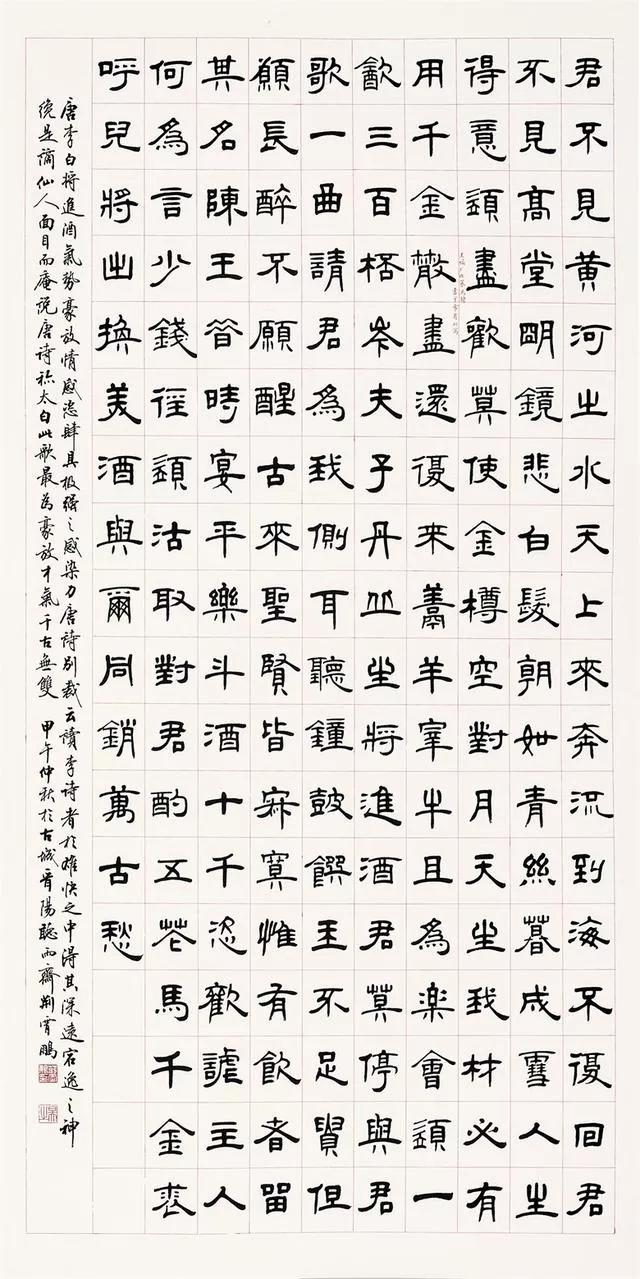 君不見黄河之水天上來奔流到海不復回君
不見高堂明鏡悲白髮朝如青絲暮成雪人生
得意須盡歡莫使金樽空對月天生我材必有
用千金散盡還復來烹羊宰牛且為樂會須一
飲三百杯岑夫子丹丘生將進酒君莫停與君
歌一曲請君為我側耳聽鐘鼓饌玉不足貴但
願長醉不願醒古來聖賢皆寂寞惟有飲者留
其名陳王昔時宴平樂斗酒十千恣歡謔主人
何為言少錢徑須沽取對君酌五花馬千金裘
呼兒將出換美酒與爾同銷萬古愁
唐李白將進酒氣勢豪放情感恣肆具極强之感染力唐詩别裁云讀李詩者於雄快之中得其深遠宕逸之神
纔是謫仙人面目而庵説唐詩称太白此歌最為豪放才氣千古無雙 甲午仲秋於古城晋陽聽雨齋荆霄鵬